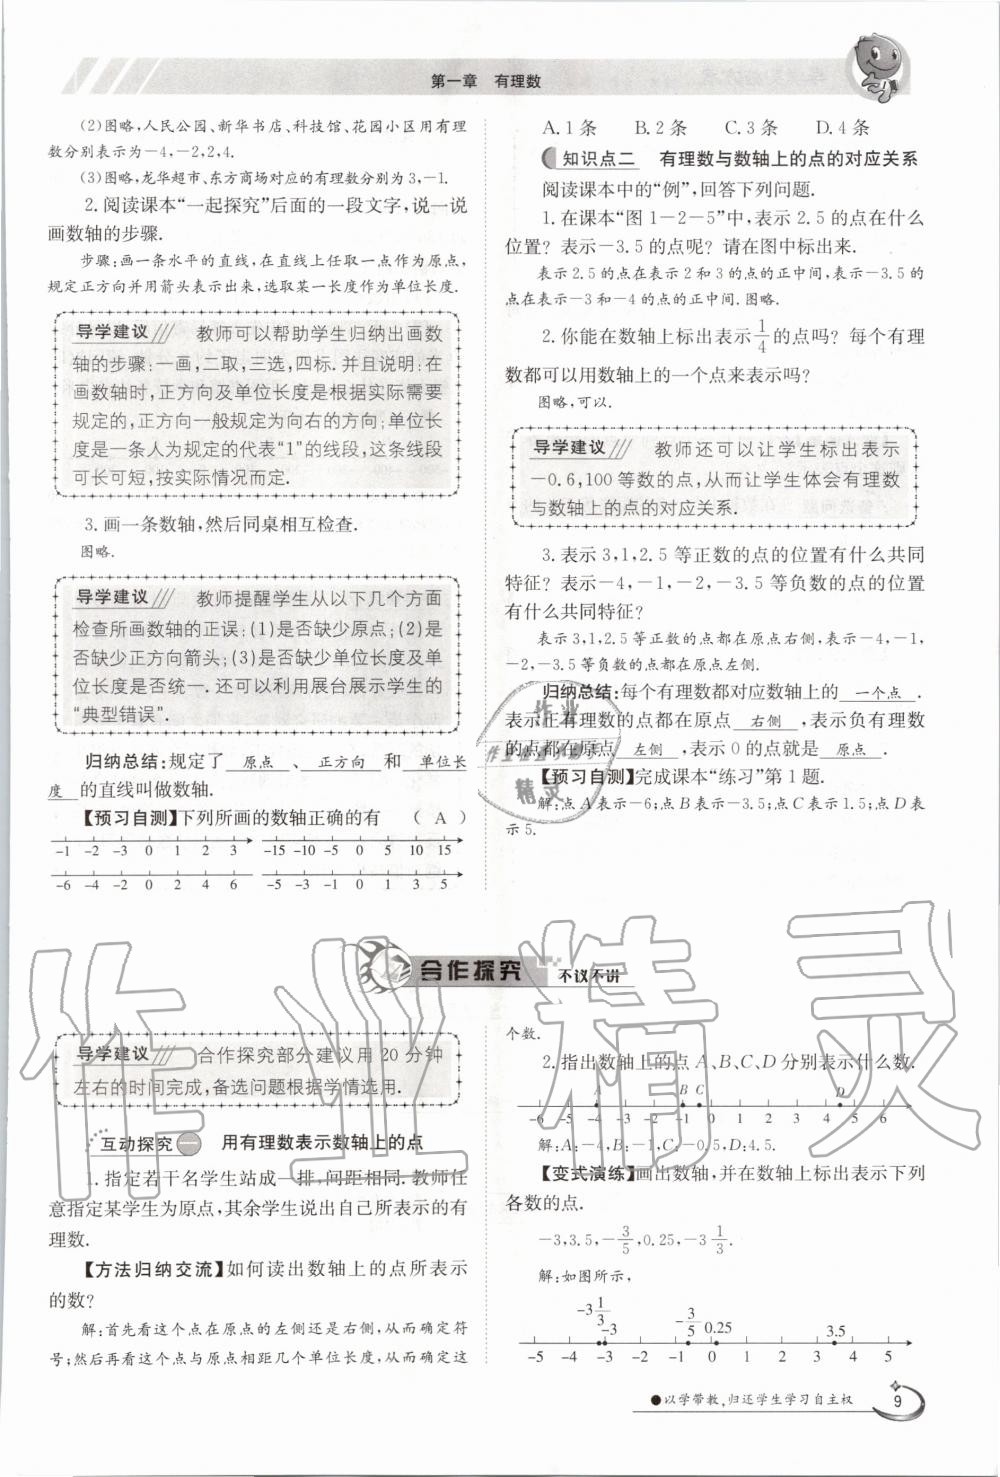 第一章　有理数
(2)图略,人民公园、新华书店、科技馆、花园小区用有理
数分别表示为－4,－2,2,4.
(3)图略,龙华超市、东方商场对应的有理数分别为3,－1.
2. 阅读课本“一起探究”后面的一段文字,说一说
画数轴的步骤.
步骤:画一条水平的直线,在直线上任取一点作为原点,
规定正方向并用箭头表示出来,选取某一长度作为单位长度.
导学建议/// 教师可以帮助学生归纳出画数
轴的步骤:一画,二取,三选,四标. 并且说明:在
画数轴时,正方向及单位长度是根据实际需要
规定的,正方向一般规定为向右的方向;单位长
度是一条人为规定的代表“1”的线段,这条线段
可长可短,按实际情况而定.
3. 画一条数轴,然后同桌相互检查.
图略.
导学建议/// 教师提醒学生从以下几个方面
检查所画数轴的正误:(1)是否缺少原点;(2)是
否缺少正方向箭头;(3)是否缺少单位长度及单
位长度是否统一. 还可以利用展台展示学生的
“典型错误”.
归纳总结:规定了 原点 、 正方向 和 单位长
度 的直线叫做数轴.
【预习自测】下列所画的数轴正确的有 ( A )
-1 -2 -3 0 1 2 3
-15 -10 -5 0 5 10 15
-6 -4 -2 0 2 4 6
-5 -3 -1 0 1 3 5
A. 1 条 B. 2 条 C. 3 条 D. 4 条
知识点二 有理数与数轴上的点的对应关系
阅读课本中的“例”,回答下列问题.
1. 在课本“图 1－2－5”中,表示 2.5 的点在什么
位置? 表示－3.5 的点呢? 请在图中标出来.
表示 2.5 的点在表示 2 和 3 的点的正中间,表示－3.5 的
点在表示－3 和－4 的点的正中间.图略.
2. 你能在数轴上标出表示1/4的点吗? 每个有理
数都可以用数轴上的一个点来表示吗?
图略,可以.
导学建议/// 教师还可以让学生标出表示
－0.6,100 等数的点,从而让学生体会有理数
与数轴上的点的对应关系.
3. 表示 3,1,2.5 等正数的点的位置有什么共同
特征? 表示－4,－1,－2,－3.5 等负数的点的位置
有什么共同特征?
表示 3,1,2.5 等正数的点都在原点右侧,表示－4,－1,
－2,－3.5 等负数的点都在原点左侧.
归纳总结:每个有理数都对应数轴上的 一个点 .
表示正有理数的点都在原点 右侧 ,表示负有理数
的点都在原点 左侧 ,表示 0 的点就是 原点 .
【预习自测】完成课本“练习”第 1 题.
解:点 A 表示－6;点 B 表示－3.5;点 C 表示 1.5;点 D 表
示 5.
合作探究 不议不讲
导学建议/// 合作探究部分建议用 20 分钟
左右的时间完成,备选问题根据学情选用.
互动探究一 用有理数表示数轴上的点
1. 指定若干名学生站成一排,间距相同. 教师任
意指定某学生为原点,其余学生说出自己所表示的有
理数.
【方法归纳交流】如何读出数轴上的点所表示
的数?
解:首先看这个点在原点的左侧还是右侧,从而确定符
号;然后再看这个点与原点相距几个单位长度,从而确定这
个数.
2. 指出数轴上的点 A、B、C、D 分别表示什么数.
A B C D
-6 -5 -4 -3 -2 -1 0 1 2 3 4 5 6
解:A:－4,B:－1,C:－0.5,D:4.5.
【变式演练】画出数轴,并在数轴上标出表示下列
各数的点.
－3,3.5,－3/5,0.25,－3 1/3.
解:如图所示,
-3 1/3 -3 -3/5 0.25 3.5
-5 -4 -3 -2 -1 0 1 2 3 4 5
●以学带教,归还学生学习自主权
9
作业精灵